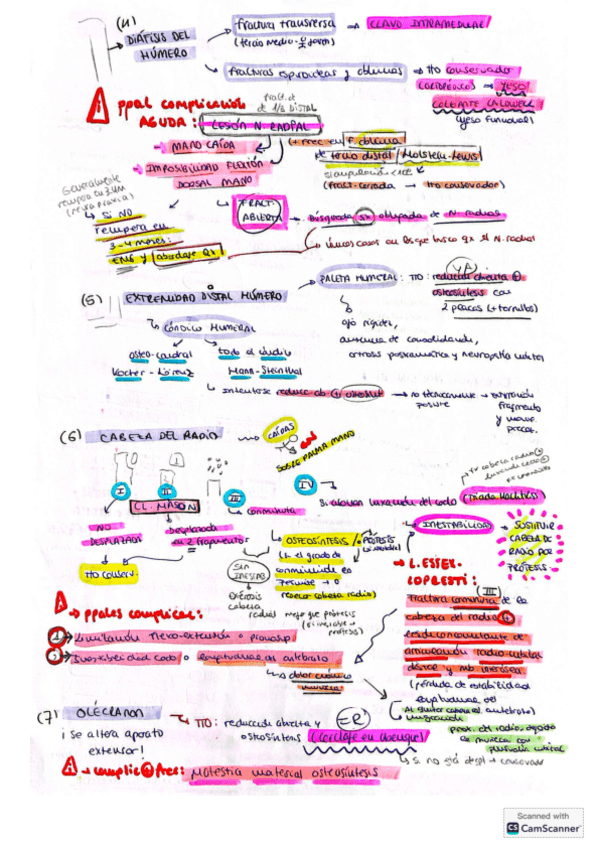 (4) DIÁFISIS DEL HÚMERO
fractura transversa → CLAVO INTRAMEDULAR
(tercio medio
fracturas espiroideas y oblicuas → tto conservador
YESO
COLGANTE CALDWELL
(yeso funcional)
ppal complicación
fract. de 1/3 DISTAL
AGUDA: LESIÓN N. RADIAL
MANO CAÍDA
(+ frec en f. oblicua
de tercio distal / Holstein-Lewis)
IMPOSIBILIDAD FLEXIÓN
DORSAL MANO
(fract. cerrada → tto conservador)
Generalmente
recupera en 3-4M
(neuroapraxia)
↳ Si NO
recupera en
3-4 meses:
EMG y abordaje Qx
FRACT. ABIERTA → Búsqueda Sx obligada de N. radial
Únicos casos en Qs que busco qx el N. radial
(5) EXTREMIDAD DISTAL HÚMERO
PALETA HUMERAL: TTO: reducción abierta ⊕
osteosíntesis con
2 placas (+ tornillos)
ojo rigidez,
ausencia de consolidación,
artrosis postraumática y neuropatía cubital
CÓNDILO HUMERAL
osteo-condral
Kocher-Lorenz
todo el cóndilo
Hann-Steinthal
Intentarse reducc ab ⊕ osteosint → no técnicamente posible → extirpación
fragmento
y movs.
precoz.
(6) CABEZA DEL RADIO
CAÍDAS
SOBRE PALMA MANO
I II III IV
CL. MASON
NO
DESPLAZADA
desplazada
en 2 fragmentos
conminuta
TTO CONSERV.
Si asocian luxación del codo (tríada
OSTEOSÍNTESIS / PRÓTESIS
(si el grado de
conminución es
SIN INESTAB
Exéresis
cabeza
radial mejor que prótesis
INESTABILIDAD → SUSTITUIR
CABEZA DE
RADIO POR
PRÓTESIS
L. ESSEX-
LOPRESTI: (III)
fractura conminuta de la
cabeza del radio ⊕
lesión concomitante de
articulación radio cubital
distal y mb interósea
(pérdida de estabilidad
longitudinal del
antebrazo)
ppales complicac:
1 → Limitación flexo-extensión o pronosup
2 Inestabilidad codo o longitudinal en antebrazo
↳ dolor crónico
muñeca
prox. del radio, dejando
la muñeca con
(7) OLÉCRANON
¡se altera aparato
extensor!
TTO: reducción abierta y
osteosíntesis (cerclaje en obenque)
↳ Si no está despl → conservador
complic ⊕ frec: Molestia material osteosíntesis
Scanned with
CS CamScanner